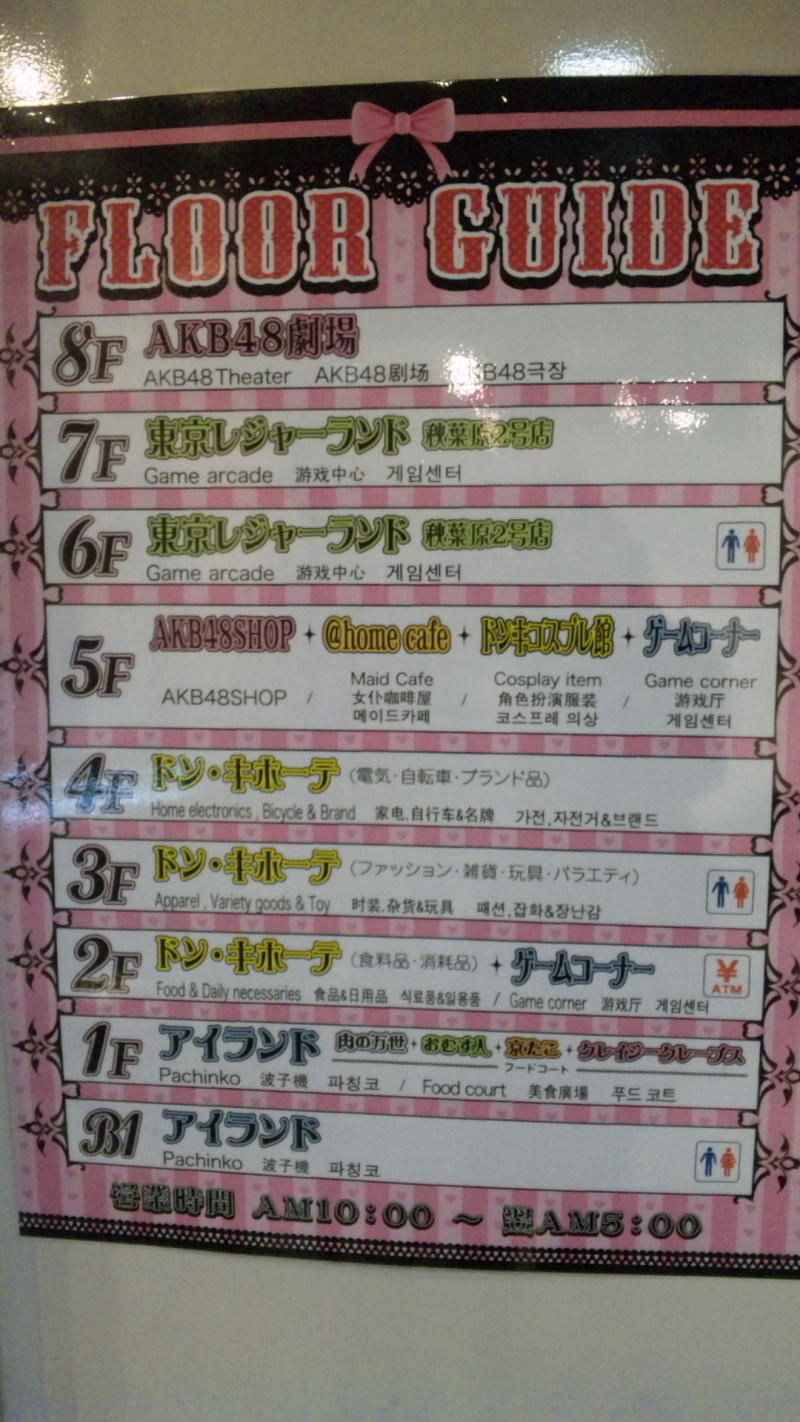 FLOOR GUIDE
8F AKB48劇場
AKB48 Theater AKB48剧场 AKB48극장
7F 東京レジャーランド 秋葉原2号店
Game arcade 游戏中心 게임센터
6F 東京レジャーランド 秋葉原2号店
Game arcade 游戏中心 게임센터
5F AKB48SHOP + @home cafe + ドンキコスプレ館 + ゲームコーナー
AKB48SHOP / Maid Cafe / Cosplay item / Game corner
女仆咖啡屋 角色扮演服装 游戏厅
메이드카페 코스프레 의상 게임센터
4F ドン・キホーテ (電気・自転車・ブランド品)
Home electronics , Bicycle & Brand 家电,自行车&名牌 가전,자전거&브랜드
3F ドン・キホーテ (ファッション・雑貨・玩具・バラエティ)
Apparel , Variety goods & Toy 时装,杂货&玩具 패션,잡화&장난감
2F ドン・キホーテ (食料品・消耗品) + ゲームコーナー
¥
ATM
Food & Daily necessaries 食品&日用品 식료품&일용품 / Game corner 游戏厅 게임센터
1F アイランド 肉の万世・おむす人・京たこ・クレイジークレープス
フードコート
Pachinko 波子機 파칭코 / Food court 美食廣場 푸드 코트
B1 アイランド
Pachinko 波子機 파칭코
営業時間 AM10:00 〜 翌AM5:00